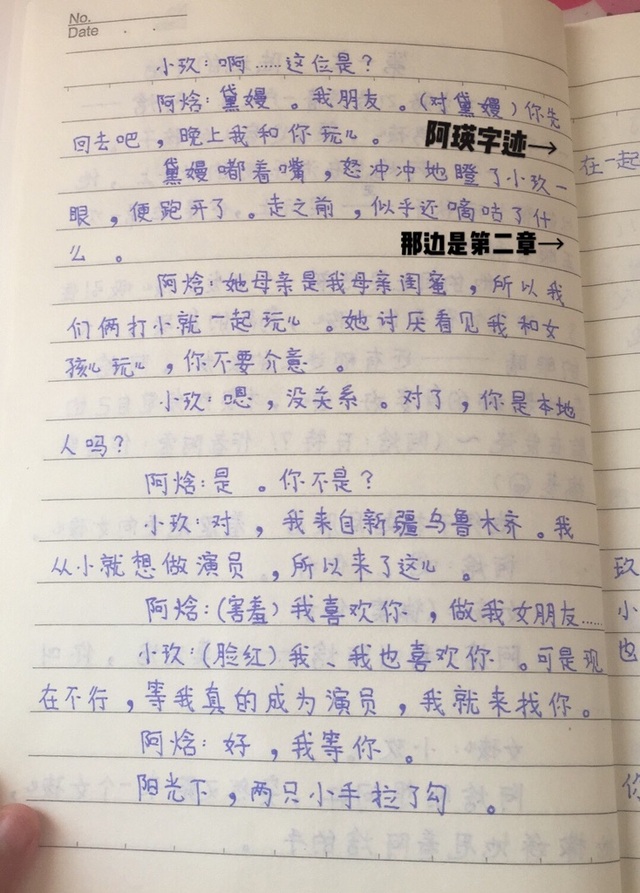 No.
Date
小玖：啊……这位是？
阿焓：黛嫚。我朋友。（对黛嫚）你先
回去吧，晚上我和你玩儿。
阿瑛字迹→
黛嫚嘟着嘴，怒冲冲地瞪了小玖一
眼，便跑开了。走之前，似乎还嘀咕了什
么。
那边是第二章→
阿焓：她母亲是我母亲闺蜜，所以我
们俩打小就一起玩儿。她讨厌看见我和女
孩儿玩儿，你不要介意。
小玖：嗯，没关系。对了，你是本地
人吗？
阿焓：是。你不是？
小玖：对，我来自新疆乌鲁木齐。我
从小就想做演员，所以来了这儿。
阿焓：（害羞）我喜欢你，做我女朋友……
小玖：（脸红）我、我也喜欢你。可是现
在不行，等我真的成为演员，我就来找你。
阿焓：好，我等你。
阳光下，两只小手拉了勾。
在一起
玖
小
也
你